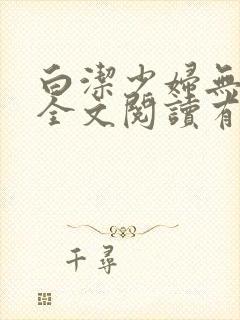 白潔少婦無
全文閱讀有
千尋